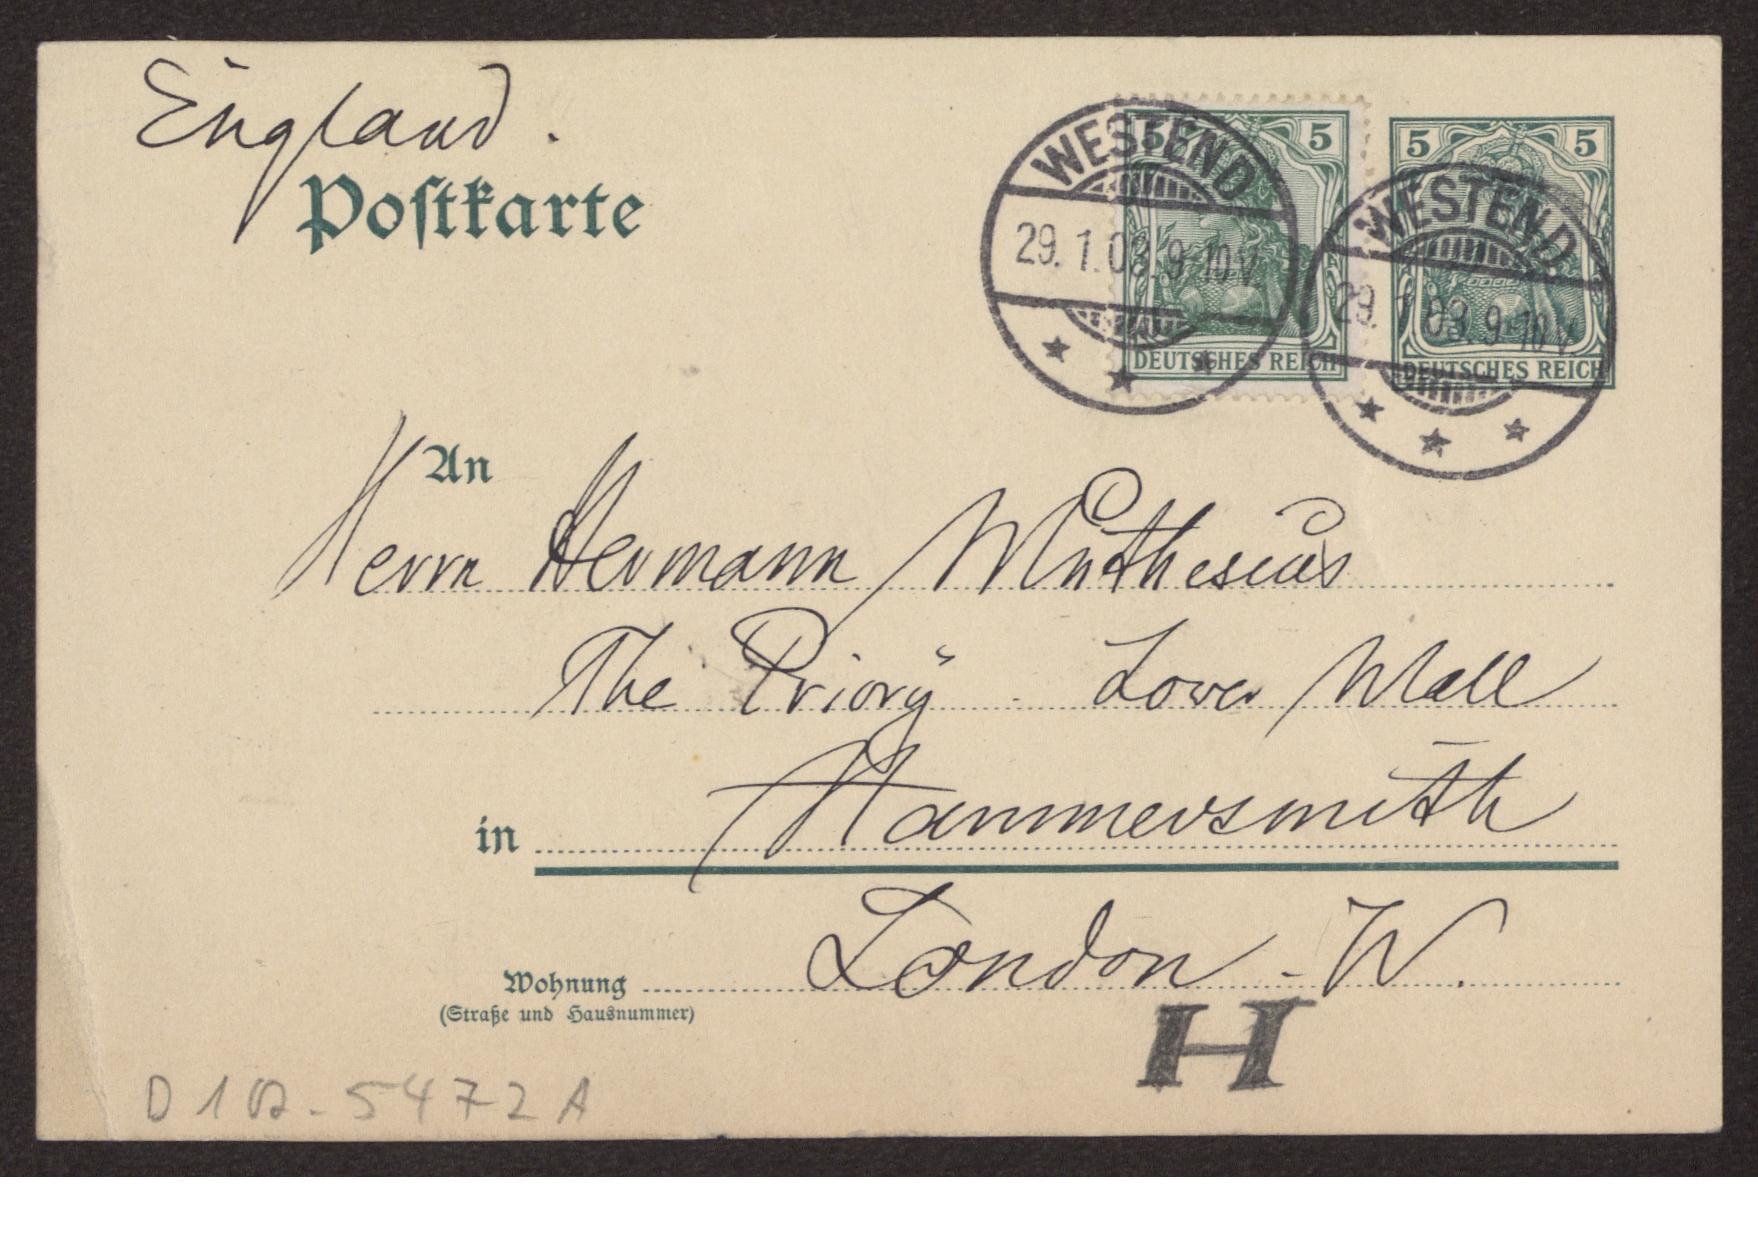 England.
Postkarte
5 5
5 5
WESTEND
29. 1. 03. 9-10V.
DEUTSCHES REICH
WESTEND
29. 1. 03. 9-10V.
DEUTSCHES REICH
An
Herrn Hermann Muthesius
The Priory Lower Mall
in Hammersmith
Wohnung London - W.
(Straße und Hausnummer)
H
5472 A